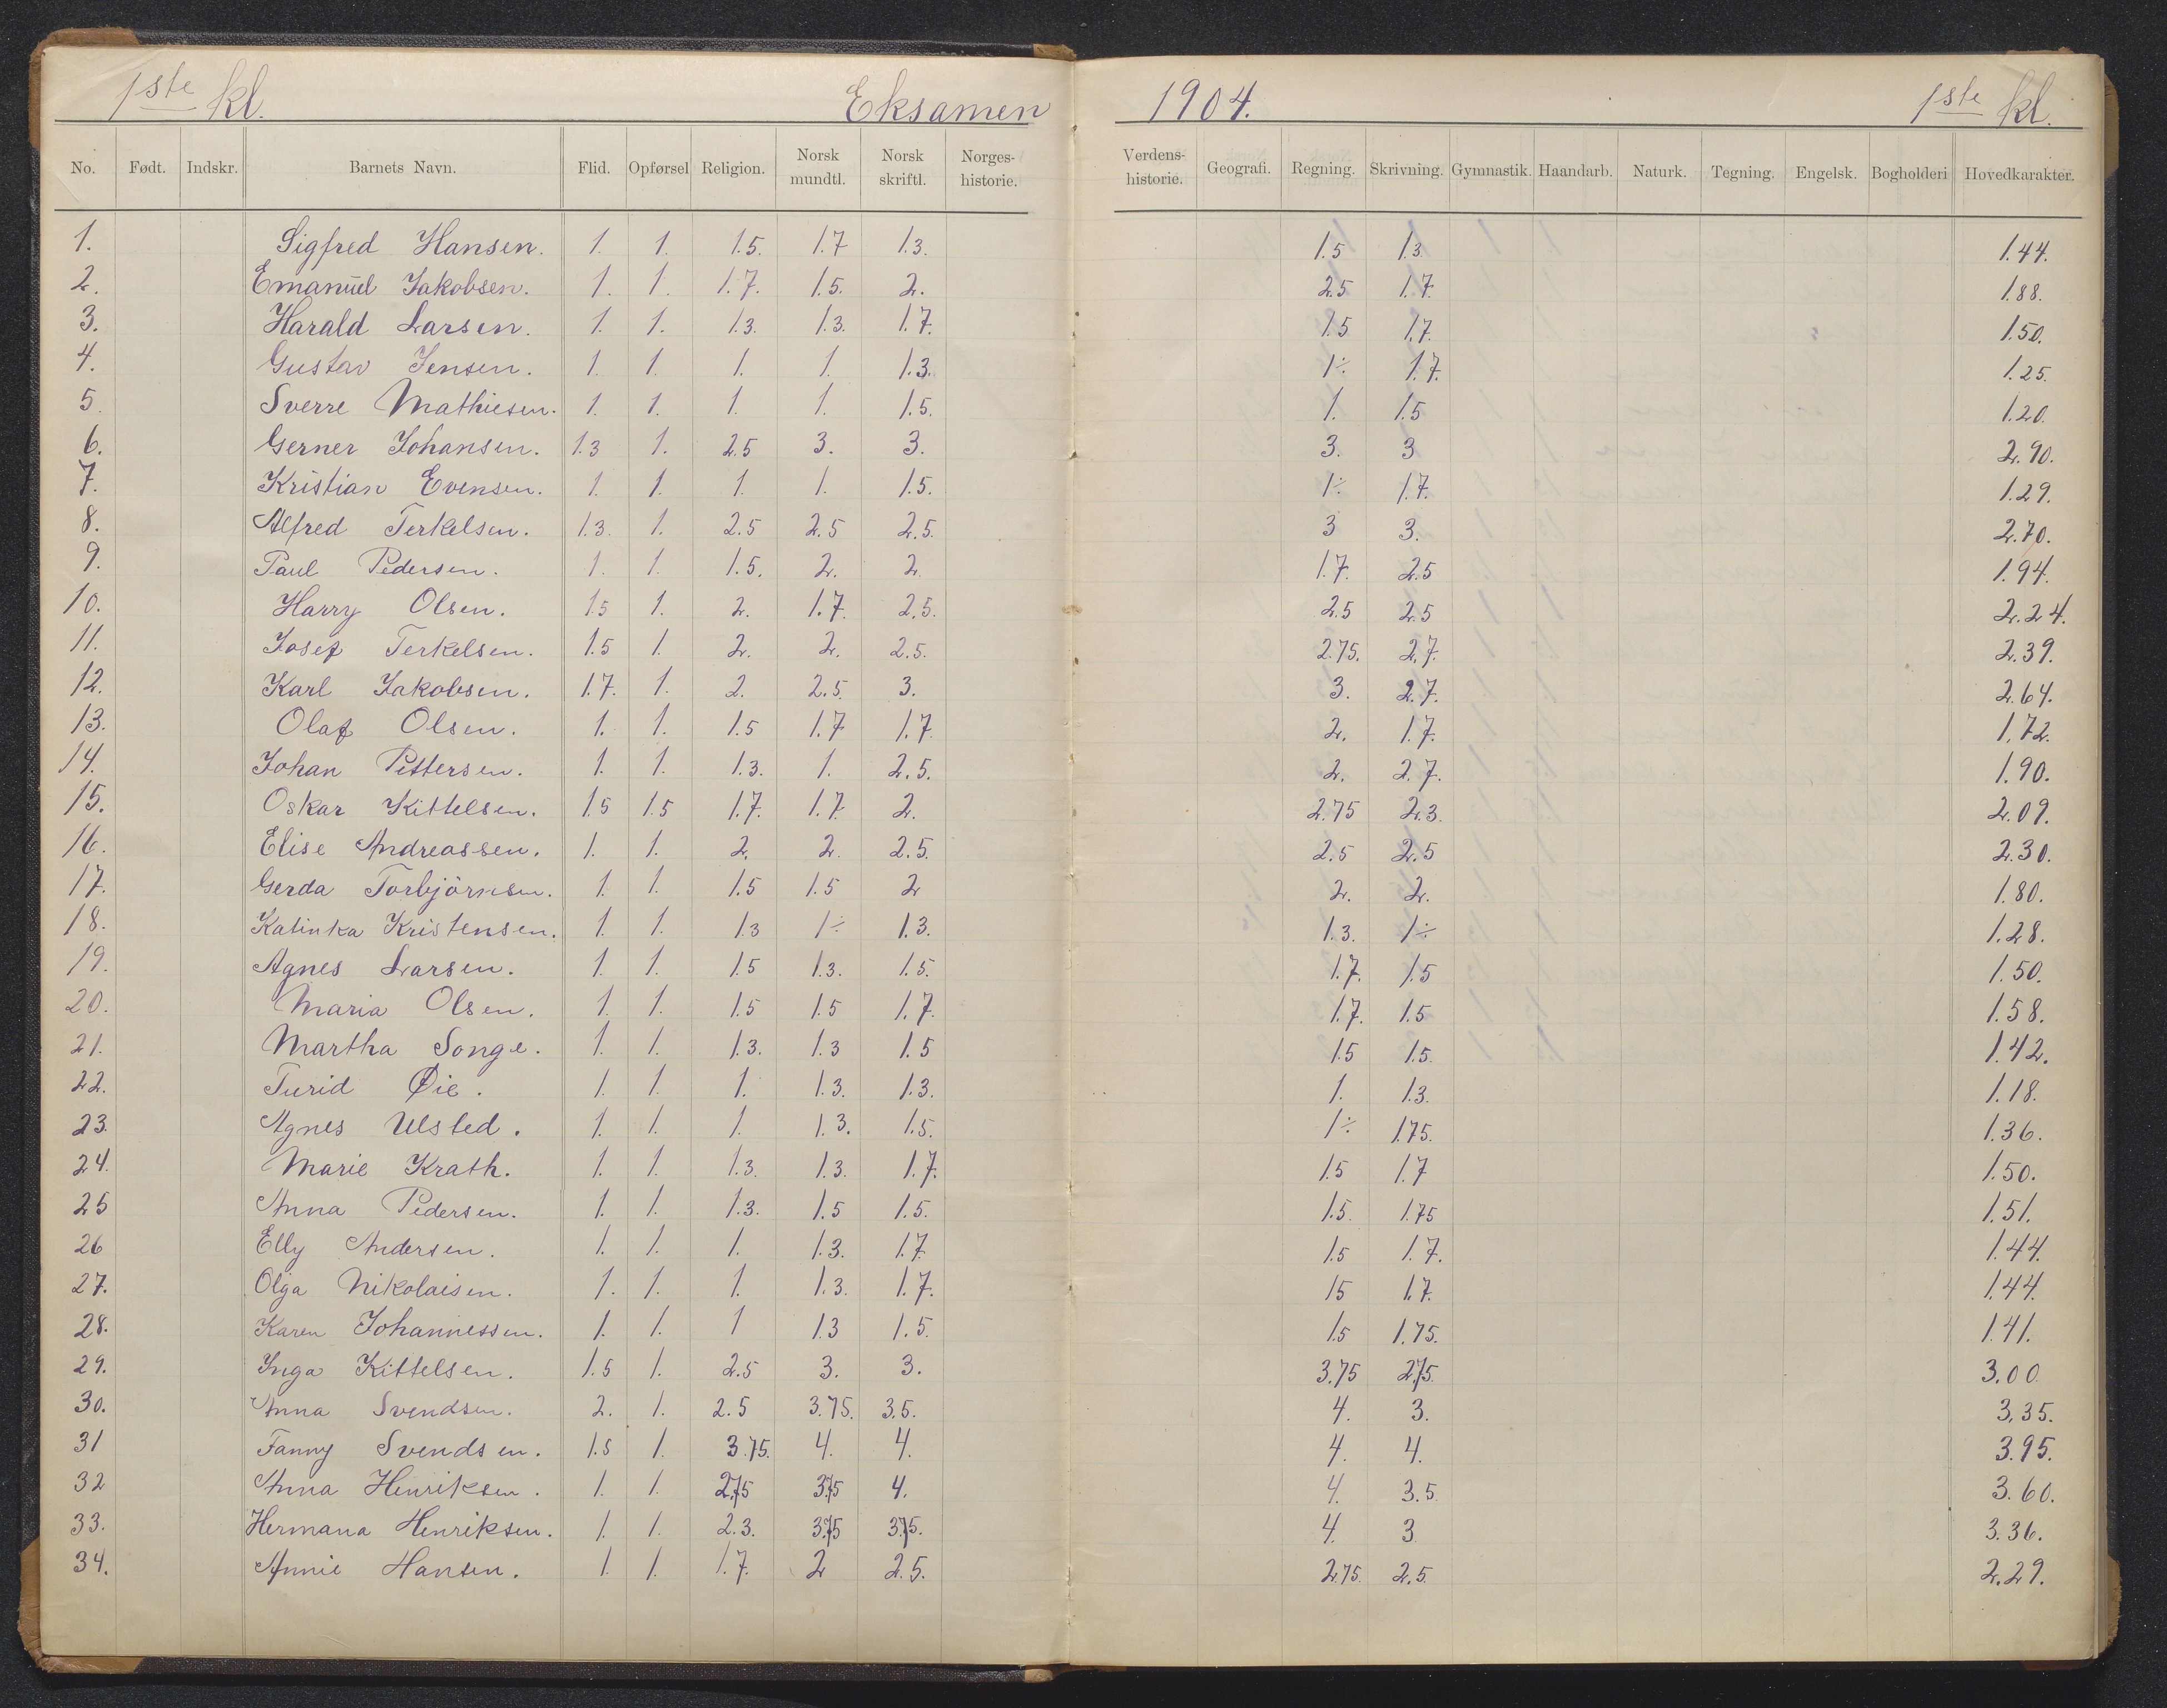 1ste kl. Eksamen 1904. 1ste kl.
No. Født. Indskr. Barnets Navn. Flid. Opførsel Religion. Norsk mundtl. Norsk skriftl. Norges-historie. Verdens-historie. Geografi. Regning. Skrivning. Gymnastik. Haandarb. Naturk. Tegning. Engelsk. Bogholderi Hovedkarakter.
1. Sigfred Hansen. 1. 1. 1.5. 1.7 1.3. 1.5 1.3. 1.44.
2. Emanuel Jakobsen. 1. 1. 1.7. 1.5. 2. 2.5 1.7. 1.88.
3. Harald Larsen. 1. 1. 1.3. 1.3. 1.7. 1.5 1.7. 1.50.
4. Gustav Jensen. 1. 1. 1. 1. 1.3. 1÷. 1.7. 1.25.
5. Sverre Mathiesen. 1. 1. 1. 1. 1.5. 1. 1.5 1.20.
6. Gerner Johansen. 1.3 1. 2.5 3. 3. 3. 3 2.90.
7. Kristian Evensen. 1. 1. 1. 1. 1.5. 1÷ 1.7. 1.29.
8. Alfred Terkelsen. 1.3. 1. 2.5 2.5 2.5. 3 3. 2.70.
9. Paul Pedersen. 1. 1. 1.5. 2. 2 1.7. 2.5 1.94.
10. Harry Olsen. 1.5 1. 2. 1.7. 2.5. 2.5 2.5 2.24.
11. Josef Terkelsen. 1.5 1. 2. 2. 2.5. 2.75. 2.7. 2.39.
12. Karl Jakobsen. 1.7. 1. 2. 2.5. 3. 3. 2.7. 2.64.
13. Olaf Olsen. 1. 1. 1.5 1.7 1.7. 2. 1.7. 1.72.
14. Johan Pettersen. 1. 1. 1.3. 1. 2.5. 2. 2.7. 1.90.
15. Oskar Kittelsen. 1.5 1.5 1.7. 1.7. 2. 2.75 2.3. 2.09.
16. Elise Andreassen. 1. 1. 2. 2. 2.5. 2.5 2.5 2.30.
17. Gerda Torbjörnsen. 1. 1. 1.5 1.5 2 2. 2. 1.80.
18. Katinka Kristensen. 1. 1. 1.3 1÷ 1.3. 1.3. 1÷ 1.28.
19. Agnes Larsen. 1. 1. 1.5 1.3. 1.5. 1.7. 1.5 1.50.
20. Maria Olsen. 1. 1. 1.5 1.5 1.7. 1.7. 1.5 1.58.
21. Martha Songe. 1. 1. 1.3. 1.3 1.5 1.5 1.5. 1.42.
22. Turid Øie. 1. 1. 1. 1.3. 1.3. 1. 1.3. 1.18.
23. Agnes Ulsted. 1. 1. 1. 1.3. 1.5. 1÷. 1.75. 1.36.
24. Marie Krath. 1. 1. 1.3. 1.3. 1.7. 1.5 1.7 1.50.
25 Anna Pedersen. 1. 1. 1.3. 1.5 1.5. 1.5. 1.75 1.51.
26 Elly Andersen. 1. 1. 1. 1.3. 1.7 1.5 1.7. 1.44.
27. Olga Nikolaisen. 1. 1. 1. 1.3. 1.7. 15 1.7. 1.44.
28. Karen Johannessen. 1. 1. 1 1.3 1.5. 1.5 1.75. 1.41.
29. Inga Kittelsen. 1.5 1. 2.5 3. 3. 3.75 2.75. 3.00
30. Anna Svendsen. 2. 1. 2.5 3.75. 3.5. 4. 3. 3.35.
31 Fanny Svendsen. 1.5 1. 3.75. 4. 4. 4. 4. 3.95.
32 Anna Henriksen. 1. 1. 2.75 3.75 4. 4. 3.5. 3.60.
33. Hermana Henriksen. 1. 1. 2.3. 3.75 3.75. 4. 3 3.36.
34. Annie Hansen. 1. 1. 1.7. 2 2.5. 2.75. 2.5. 2.29.